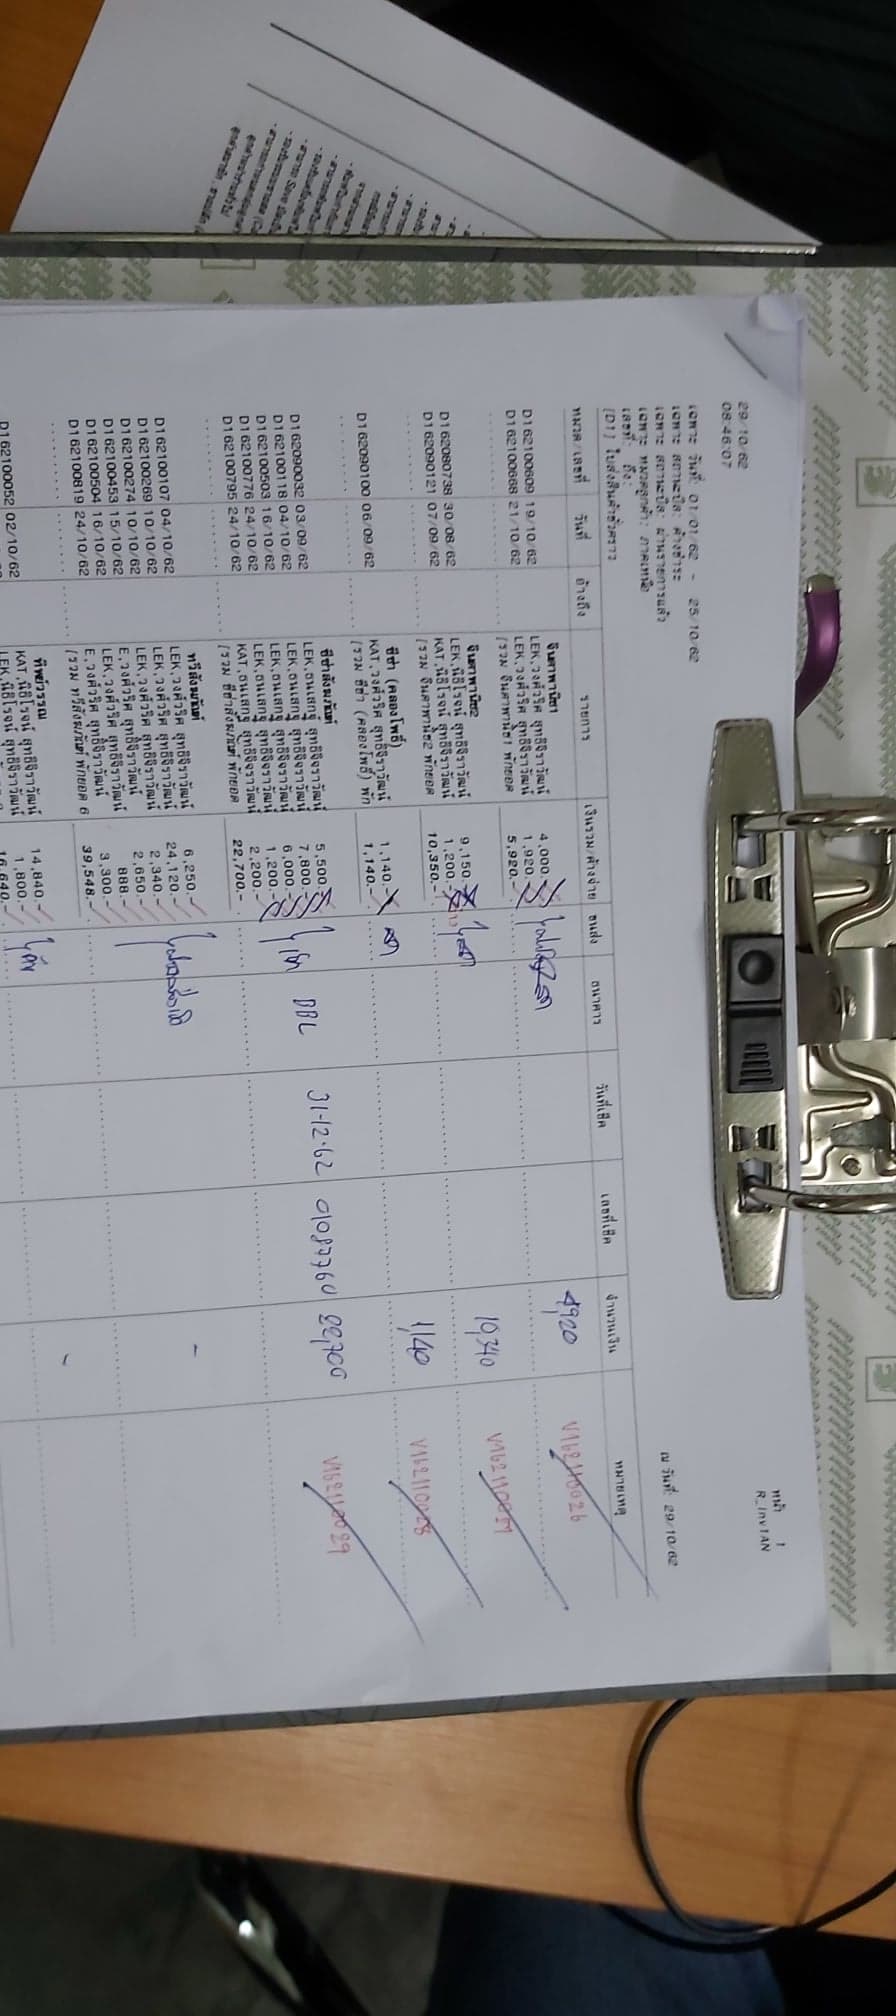 หน้า 1
R_Inv1AN
29/10/62
08:46:07
เฉพาะ วันที่: 01/01/62 - 25/10/62
เฉพาะ สถานะบิล: ค้างชำระ
เฉพาะ สถานะบิล: ผ่านรายการแล้ว
เฉพาะ หมวดลูกค้า: ภาคเหนือ
เลขที่: ถึง:
[D1] ใบส่งสินค้าชั่วคราว
ณ วันที่: 29/10/62
หมวด/เลขที่ วันที่ อ้างถึง รายการ เงินรวม/ค้างจ่าย ขนส่ง ธนาคาร วันที่เช็ค เลขที่เช็ค จำนวนเงิน หมายเหตุ
จินดาพานิช1
D162100609 19/10/62 LEK,วงศ์วริศ สุทธิจิราวัฒน์ 4,000.- 4,920 V162110026
D162100668 21/10/62 LEK,วงศ์วริศ สุทธิจิราวัฒน์ 1,920.-
[รวม จินดาพานิช1 พักยอด 5,920.-
จินดาพานิช2
D162080738 30/08/62 LEK,นิธิโรจน์ สุทธิจิราวัฒน์ 9,150.- 10,340
D162090121 07/09/62 KAT,นิธิโรจน์ สุทธิจิราวัฒน์ 1,200.-
[รวม จินดาพานิช2 พักยอด 10,350.-
ซีซ่า (คลองโพธิ์)
D162090100 06/09/62 KAT,วงศ์วริศ สุทธิจิราวัฒน์ 1,140.- สด 1,140 V162110028
[รวม ซีซ่า (คลองโพธิ์) พัก 1,140.-
ซีซ่าสังฆภัณฑ์
D162090032 03/09/62 LEK,ธนเสกฐ์ สุทธิจิราวัฒน์ 5,500.- BBL 31-12-62 01087760 22,700 V162110029
D162100118 04/10/62 LEK,ธนเสกฐ์ สุทธิจิราวัฒน์ 7,800.-
D162100503 16/10/62 LEK,ธนเสกฐ์ สุทธิจิราวัฒน์ 6,000.-
D162100776 24/10/62 LEK,ธนเสกฐ์ สุทธิจิราวัฒน์ 1,200.-
D162100795 24/10/62 KAT,ธนเสกฐ์ สุทธิจิราวัฒน์ 2,200.-
[รวม ซีซ่าสังฆภัณฑ์ พักยอด 22,700.-
ทวีสังฆภัณฑ์
D162100107 04/10/62 LEK,วงศ์วริศ สุทธิจิราวัฒน์ 6,250.- -
D162100269 10/10/62 LEK,วงศ์วริศ สุทธิจิราวัฒน์ 24,120.-
D162100274 10/10/62 LEK,วงศ์วริศ สุทธิจิราวัฒน์ 2,340.-
D162100453 15/10/62 E,วงศ์วริศ สุทธิจิราวัฒน์ 2,650.-
D162100504 16/10/62 LEK,วงศ์วริศ สุทธิจิราวัฒน์ 888.-
D162100819 24/10/62 E,วงศ์วริศ สุทธิจิราวัฒน์ 3,300.-
[รวม ทวีสังฆภัณฑ์ พักยอด 6 39,548.-
ทิพย์วรรณ
D162100052 02/10/62 KAT,นิธิโรจน์ สุทธิจิราวัฒน์ 14,840.- -
LEK,นิธิโรจน์ สุทธิจิราวัฒน์ 1,800.-
16,640.-